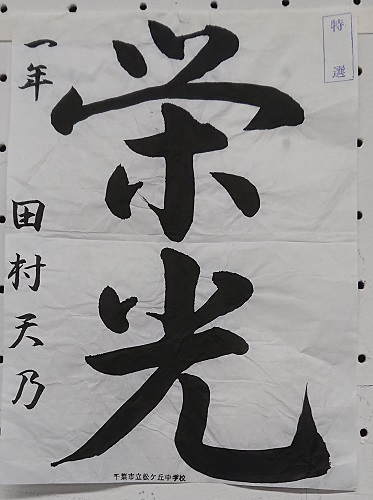 特選
栄光
一年 田村天乃
千葉市立松ケ丘中学校